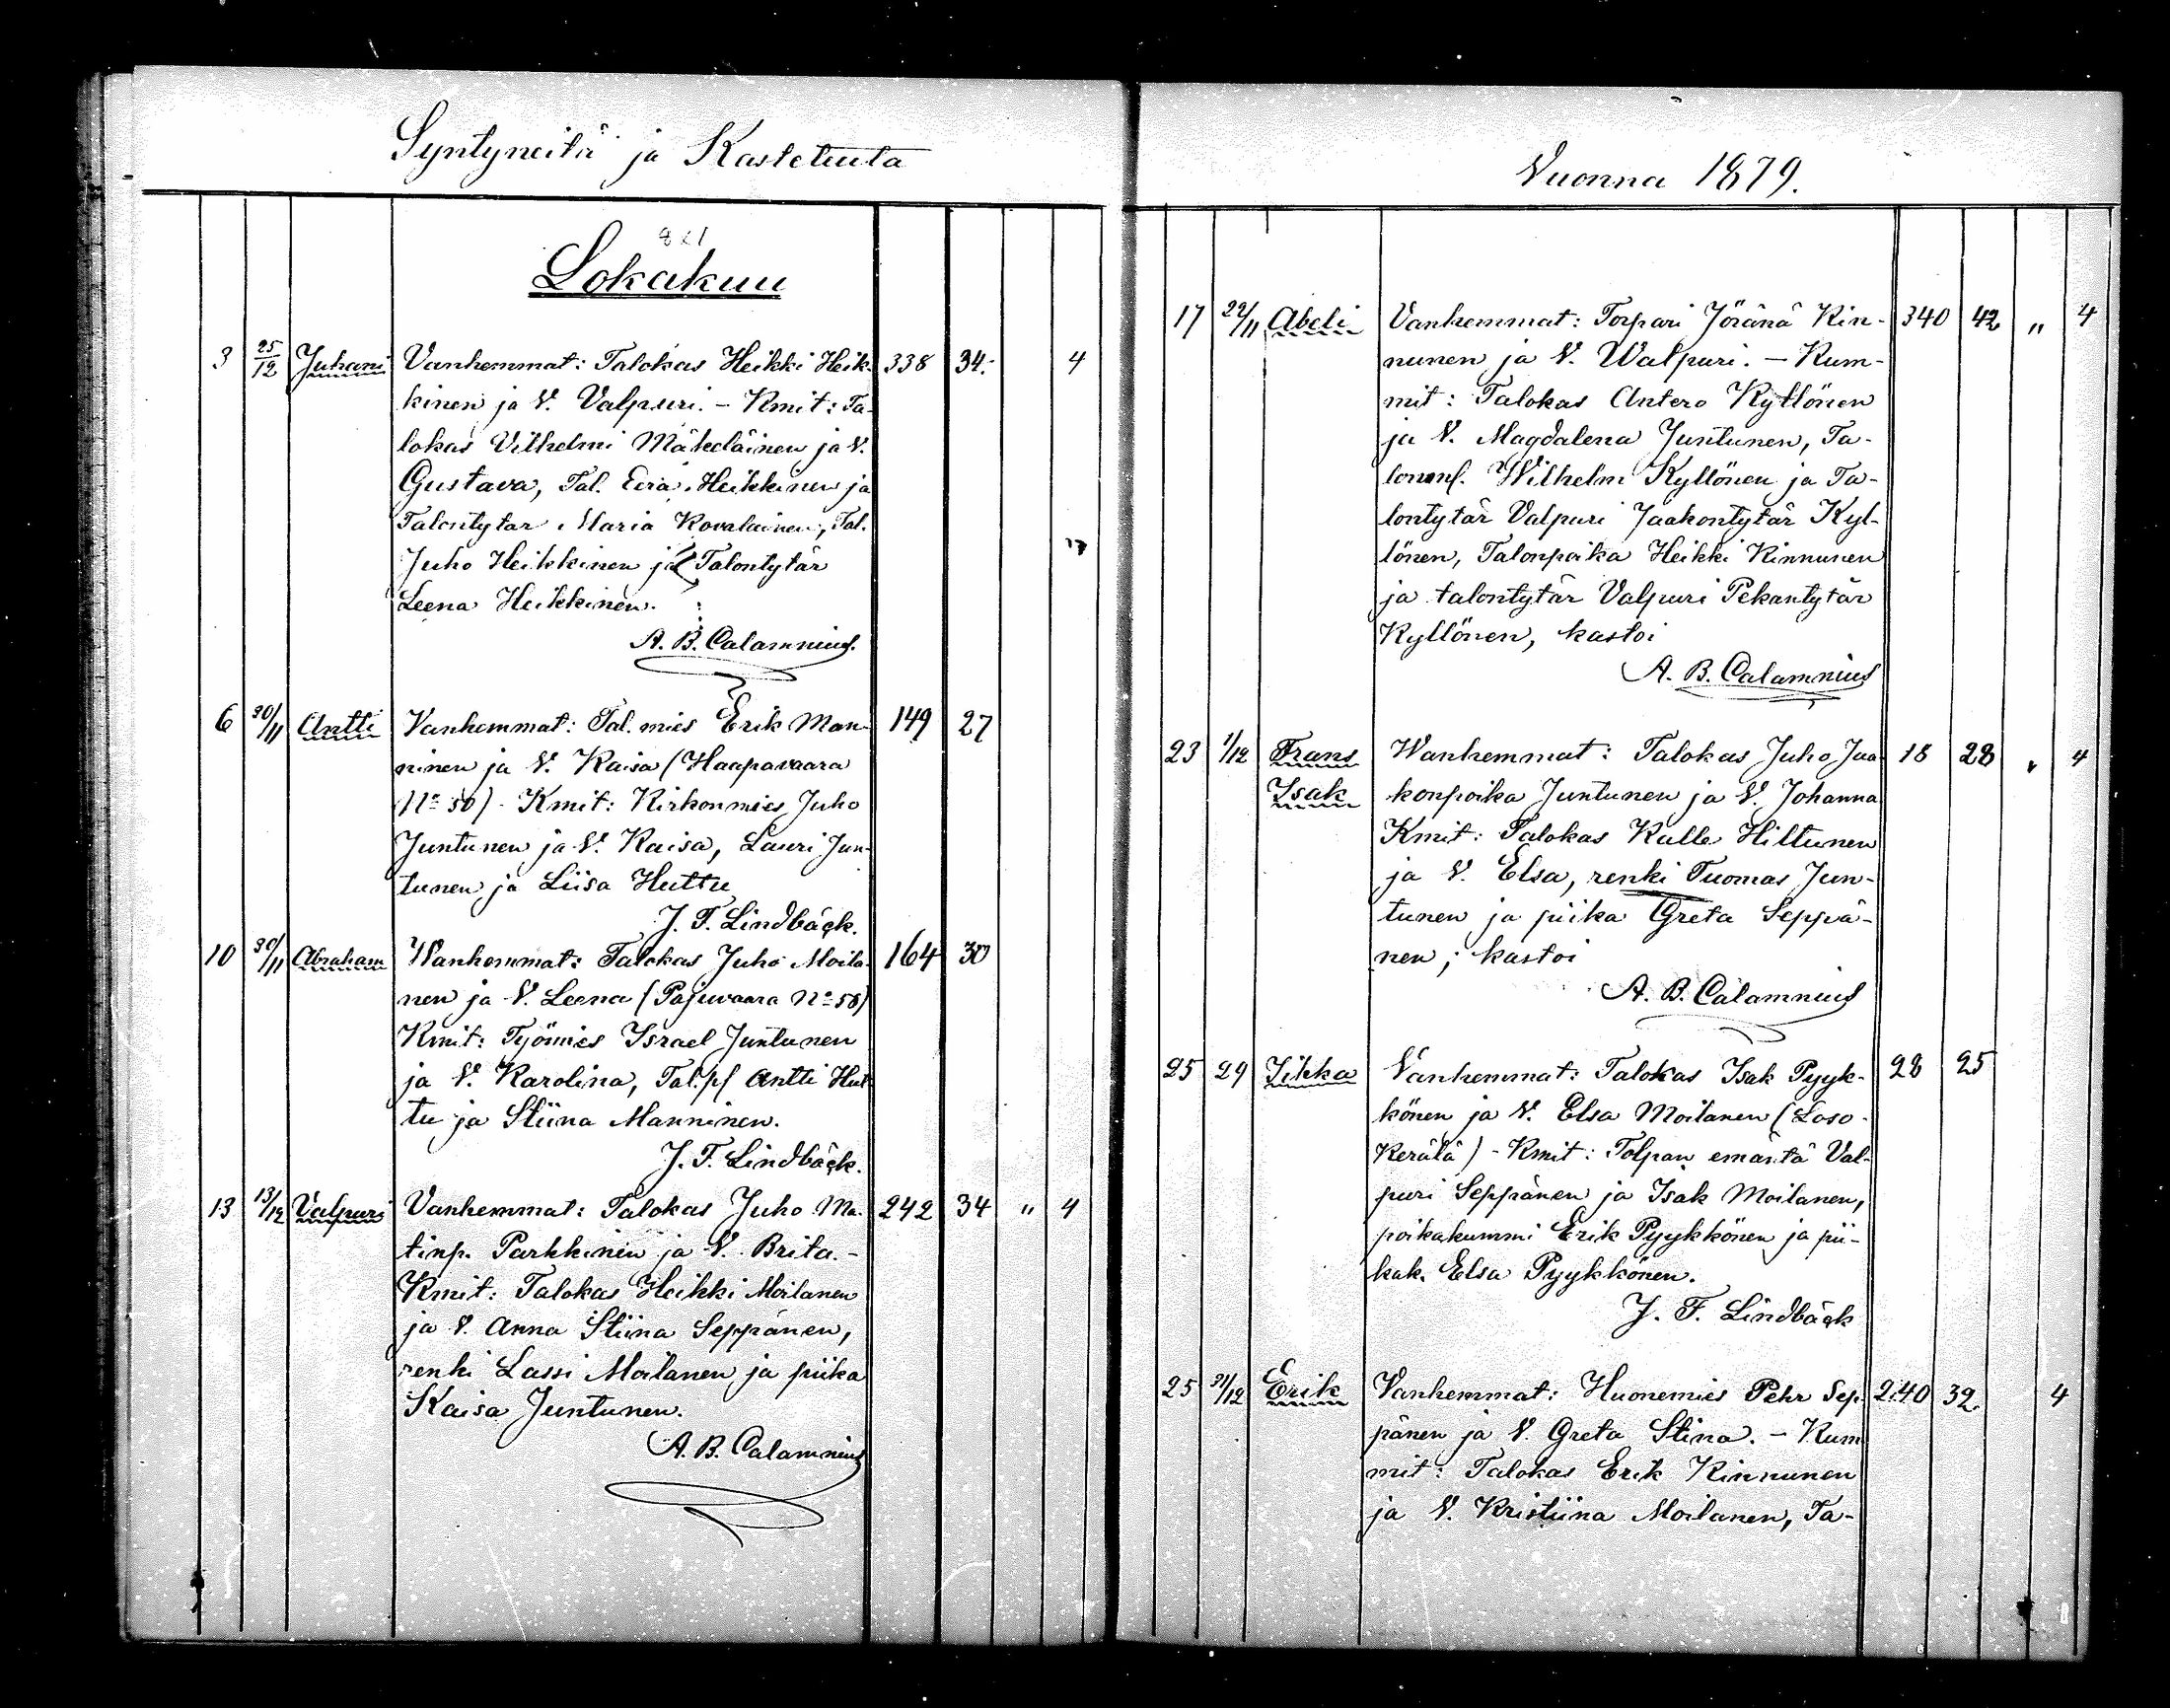 Syntyneitä ja Kastetuita
Lokakuu
3 25/12 Juhani Vanhemmat: Talokas Heikki Heik- 338 34. 4
kinen ja V. Valpuri. - Kmit: Ta-
lokas Vilhelmi Mäkeläinen ja V.
Gustava, Tal. Eera Heikkinen ja
Talontytar Maria Kovalainen, Tal.
Juho Heikkinen ja Talontytär
Leena Heikkinen.
A. B. Calamnius.
6 30/11 Antti Vanhemmat: Tal. mies Erik Man- 149 27
ninen ja V. Kaisa (Haapavaara
No 50) - Kmit: Kirkonmies Juho
Juntunen ja V. Kaisa, Lauri Jun-
tunen ja Liisa Huttu
J. F. Lindbäck.
10 30/11 Abraham Wanhemmat: Talokas Juho Moila- 164 30
nen ja V. Leena (Pajuvaara No 58)
Kmit: Työmies Israel Juntunen
ja V. Karolina, Tal. p/ Antti Hut-
tu ja Stiina Manninen.
J. F. Lindbäck.
13 13/12 Valpuri Vanhemmat: Talokas Juho Ma- 242 34 " 4
tinp. Parkkinen ja V. Brita. -
Kmit: Talokas Heikki Moilanen
ja V. Anna Stiina Seppänen,
renki Lassi Moilanen ja piika
Kaisa Juntunen.
A. B. Calamnius
Vuonna 1879.
17 22/11 Abeli Vanhemmat: Torpari Jöränä Kin- 340 42 " 4
nunen ja V. Walpuri. - Kum-
mit: Talokas Antero Kyllönen
ja V. Magdalena Juntunen, Ta-
lonm/. Wilhelm Kyllönen ja Ta-
lontytär Valpuri Jaakontytär Kyl-
lönen, Talonpoika Heikki Kinnunen
ja talontytär Valpuri Pekantytär
Kyllönen, kastoi
A. B. Calamnius
23 1/12 Frans Wanhemmat: Talokas Juho Jaa- 18 28 " 4
Isak konpoika Juntunen ja V. Johanna
Kmit: Talokas Kalle Hiltunen
ja V. Elsa, renki Tuomas Jun-
tunen ja piika Greta Seppä-
nen; kastoi
A. B. Calamnius
25 29 Iikka Vanhemmat: Talokas Isak Pyyk- 28 25
könen ja V. Elsa Moilanen (Loso-
Kerälä) - Kmit: Tolpan emäntä Val-
puri Seppänen ja Isak Moilanen,
poikakummi Erik Pyykkönen ja pii-
kak. Elsa Pyykkönen.
J. F. Lindbäck
25 31/12 Erik Vanhemmat: Huonemies Pehr Sep- 240 32. 4
pänen ja V. Greta Stina. - Kum
mit: Talokas Erik Kinnunen
ja V. Kristiina Moilanen, Ta-